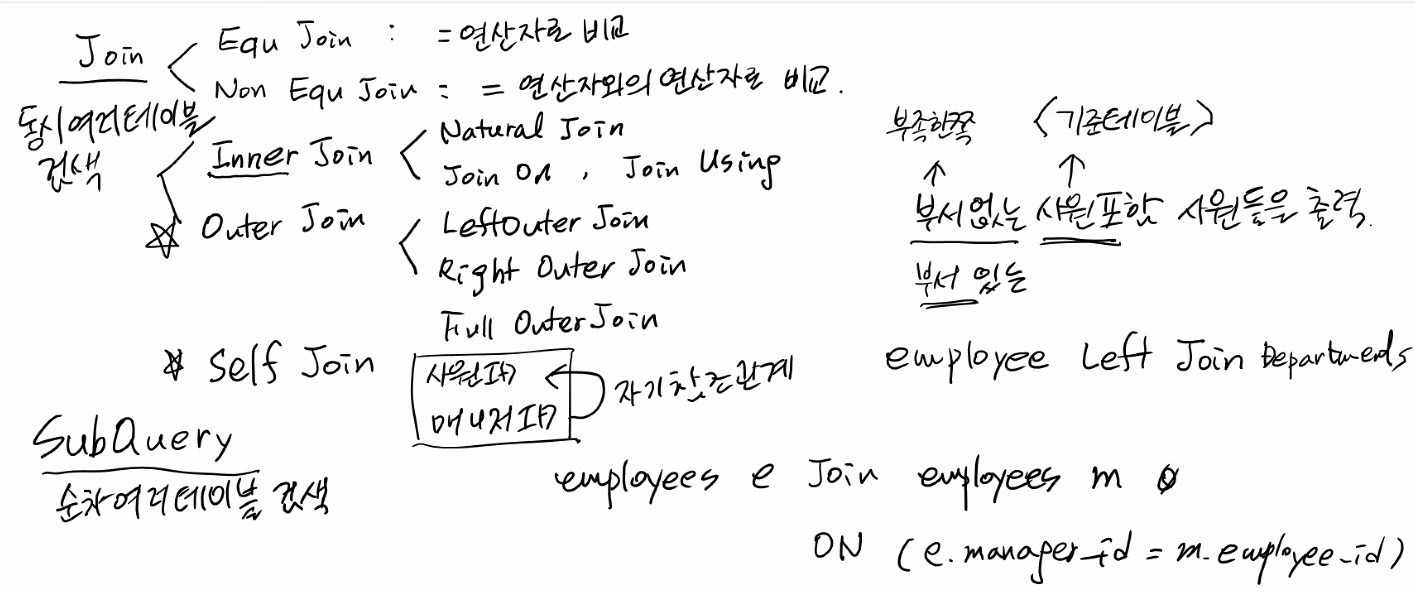 Join
Equ Join : =연산자로 비교
Non Equ Join : = 연산자와의 연산자로 비교.
동시여러테이블
검색
Inner Join
Natural Join
Join ON , Join Using
☆ Outer Join
LeftOuter Join
Right Outer Join
Full OuterJoin
☆ Self Join
사원ID
매니저ID
자기참조관계
부족한쪽 <기준테이블>
부서없는 사원포함 사원들을 출력.
부서 있는
employee Left Join Departments
SubQuery
순차여러테이블 검색
employees e Join employees m
ON (e.manager_id = m.employee_id)